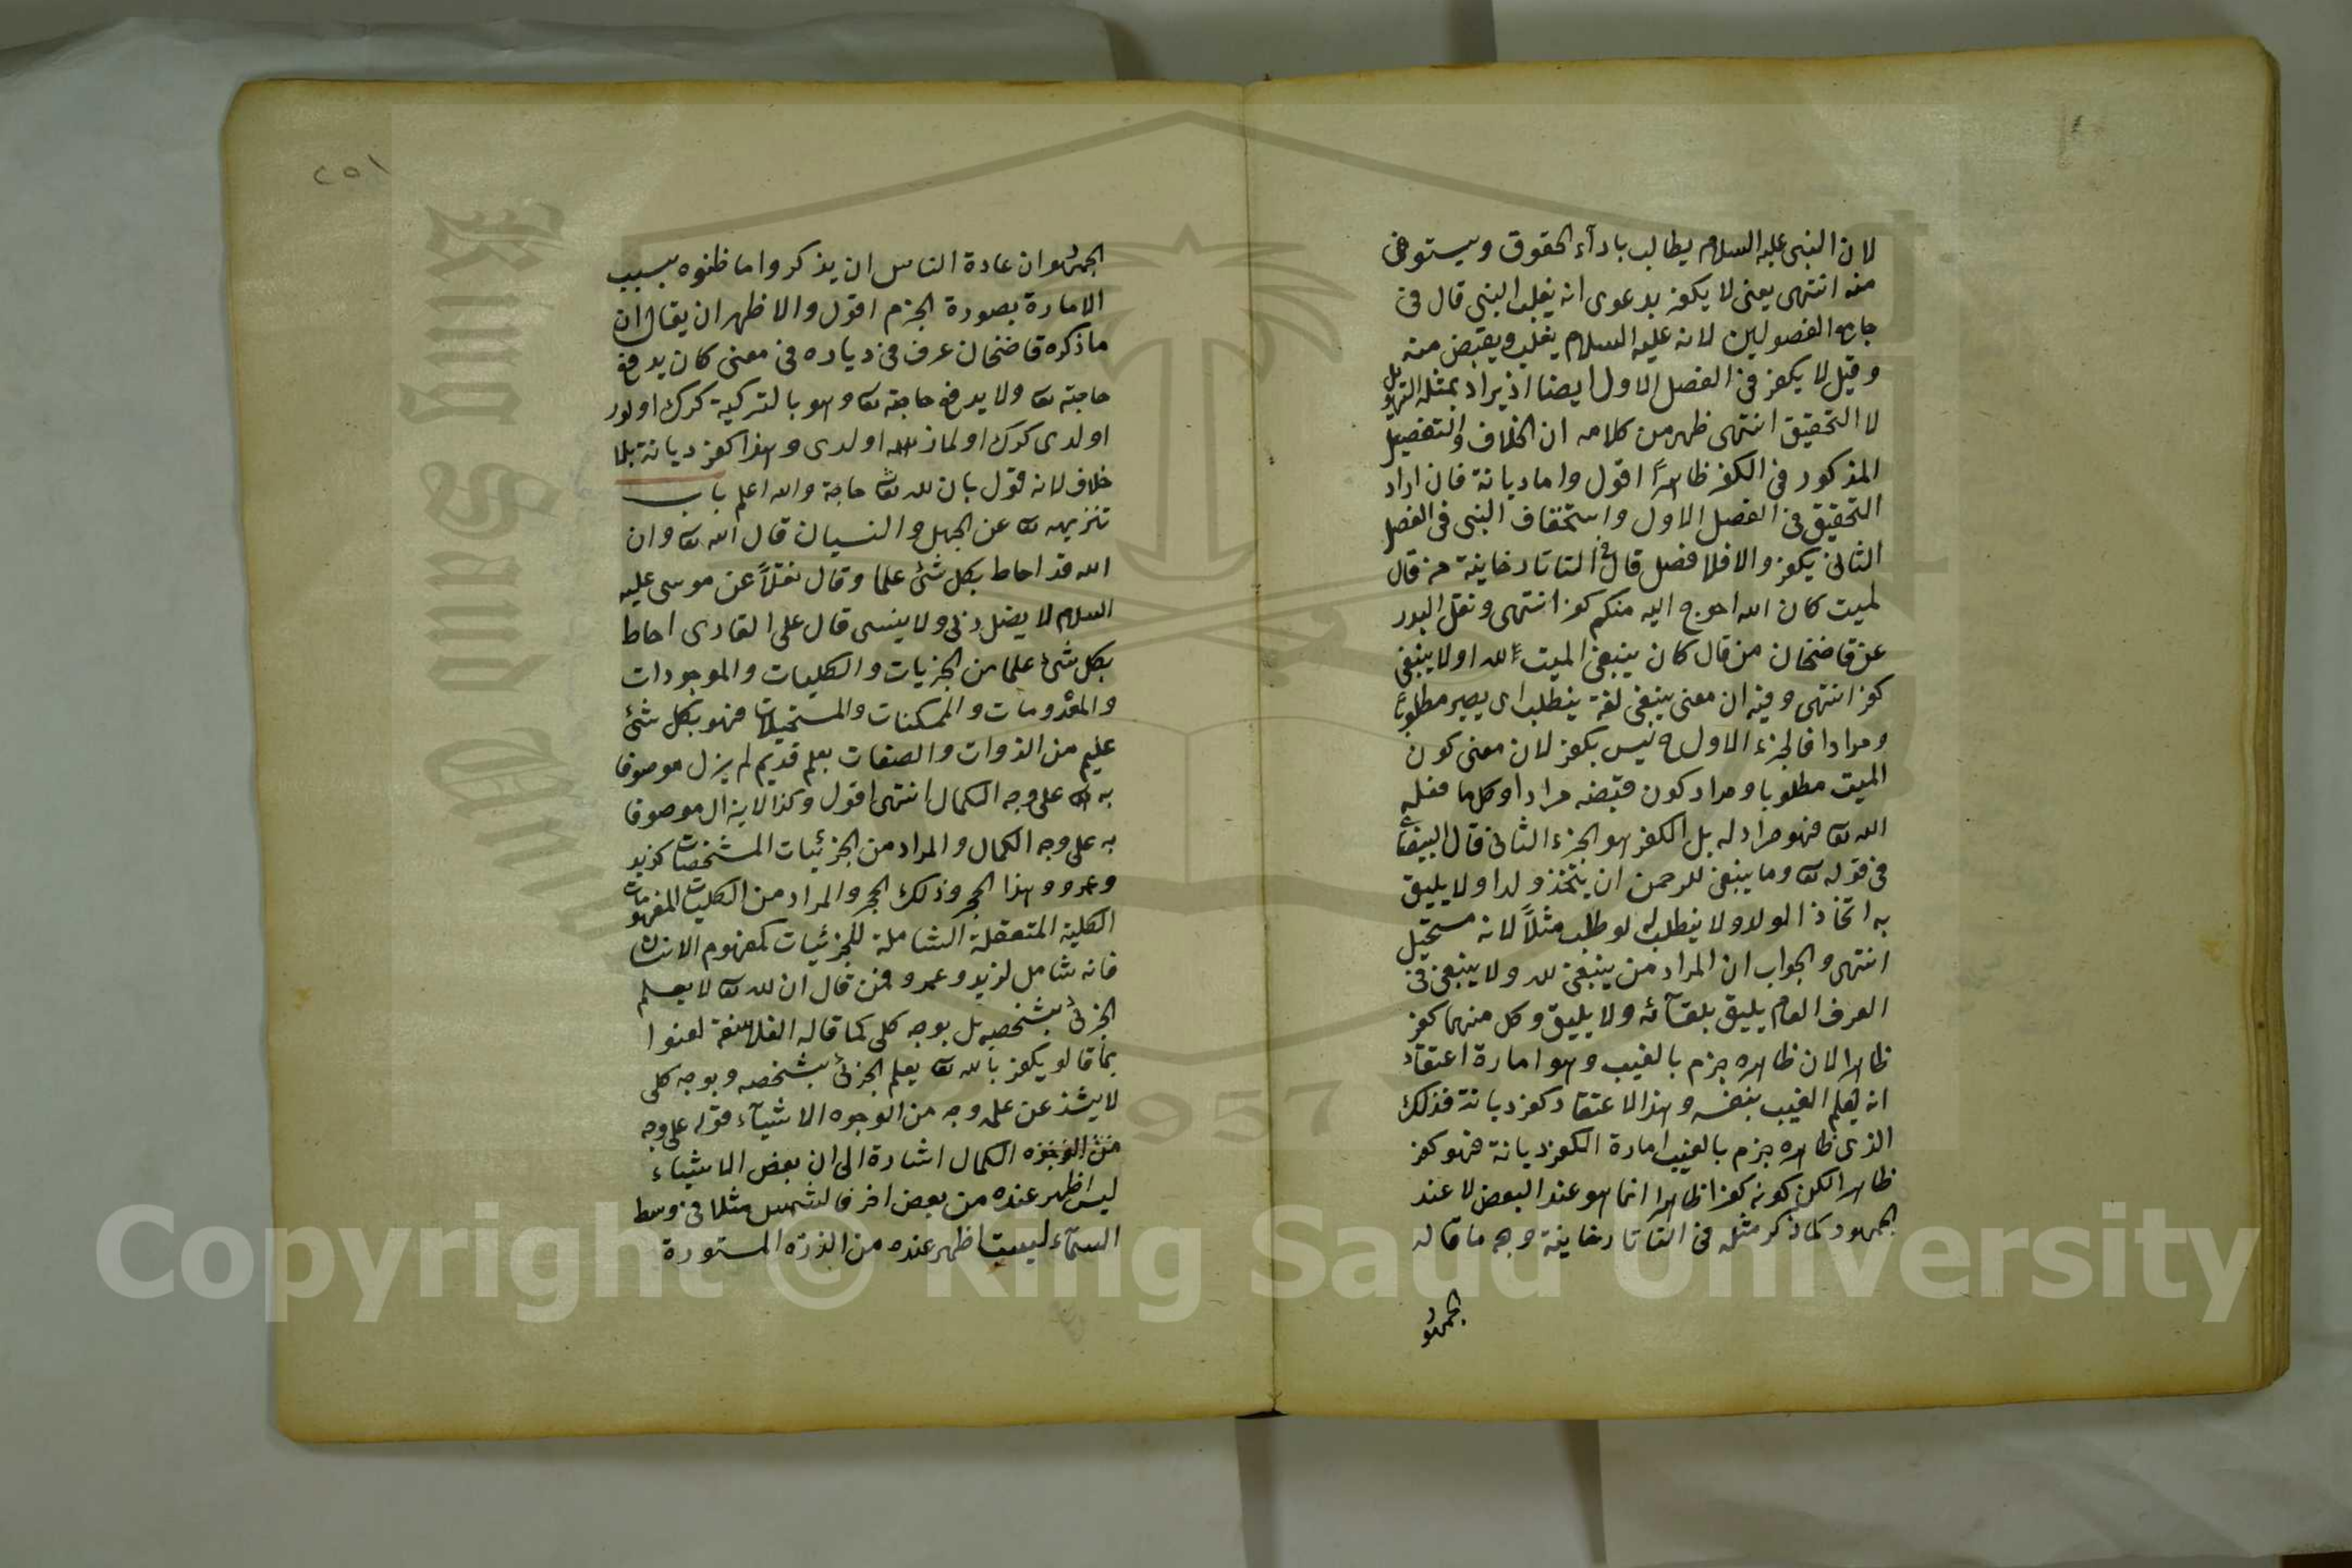 لان النبى عليه السلام يطالب باداء الحقوق ويستوفى
منه انتهى يعنى لا يكفر بدعوى انه يغلب النبى قال فى
جامع الفصولين لانه عليه السلام يغلب ويقبض منه
وقيل لا يكفر فى الفصل الاول ايضا اذ يراد بمثله التهويل
لا التحقيق انتهى ظهر من كلامه ان الخلاف والتفصيل
المذكور فى الكفر ظاهرًا اقول واما ديانة فان اراد
التحقيق فى الفصل الاول واستخفاف النبى فى الفصل
الثانى يكفر والا فلا فصل قال فى التاتارخانية من قال
لميت كان الله احوج اليه منكم كفر انتهى ونقل البدر
عن قاضخان من قال كان ينبغى الميت لله او لا ينبغى
كفر انتهى وفيه ان معنى ينبغى لغة ينطلب اى يصير مطلوبًا
ومرادا فالجزء الاول ح ليس بكفر لان معنى كون
الميت مطلوبا ومراد كون قبضه مرادا وكل ما فعله
الله تعا فهو مراد له بل الكفر هو الجزء الثانى قال البيضا
فى قوله تعا وما ينبغى للرحمن ان يتخذ ولدا ولا يليق
به اتخاذ الولد ولا ينطلب له لو طلب مثلًا لانه مستحيل
انتهى والجواب ان المراد من ينبغى لله ولا ينبغى فى
العرف العام يليق بلقائه ولا يليق وكل منهما كفر
ظاهرا لان ظاهره جزم بالغيب وهو امارة اعتقاد
انه يعلم الغيب بنفسه وهذا الاعتقاد كفر ديانة فذلك
الذى ظاهره جزم بالغيب امارة الكفر ديانة فهو كفر
ظاهرا لكن كونه كفرا ظاهرا انما هو عند البعض لا عند
الجمهور كما ذكر مثله فى التاتارخانية وجه ما قاله
الجمهور
٢٥١
الجمهور ان عادة الناس ان يذكروا ما ظنوه بسبب
الامارة بصورة الجزم اقول والاظهر ان يقال ان
ما ذكره قاضخان عرف فى دياره فى معنى كان يدفع
حاجته تعا ولا يدفع حاجته تعا وهو بالتركية كرك اولور
اولدى كرك اولماز اولدى وهذا كفر ديانة بلا
خلاف لانه قول بان لله تعا حاجة والله اعلم باب
تنزيهه تعا عن الجهل والنسيان قال الله تعا وان
الله قد احاط بكل شئ علما وقال نقلًا عن موسى عليه
السلام لا يضل ربى ولا ينسى قال على القارى احاط
بكل شئ علما من الجزيات والكليات والموجودات
والمعدومات والممكنات والمستحيلات فهو بكل شئ
عليم من الذوات والصفات بعلم قديم لم يزل موصوفا
به تعا على وجه الكمال انتهى اقول وكذا لا يزال موصوفا
به على وجه الكمال والمراد من الجزئيات المشخصات كزيد
وعمرو وهذا الحجر وذلك الحجر والمراد من الكليات المفهومات
الكلية المتعقلة الشاملة للجزئيات كمفهوم الانسان
فانه شامل لزيد وعمرو فمن قال ان الله تعا لا يعلم
الجزئ بشخصه بل بوجه كلى كما قاله الفلاسفة لعنوا
بما قالو يكفر بالله تعا يعلم الجزئ بشخصه وبوجه كلى
لا يشذ عن علمه وجه من الوجوه الاشياء قوله على وجه
من الوجوه الكمال اشارة الى ان بعض الاشياء
ليس اظهر عنده من بعض اخر فالشمس مثلا فى وسط
السماء ليست اظهر عنده من الذرة المستورة
Copyright © King Saud University
King Saud Univ
1957